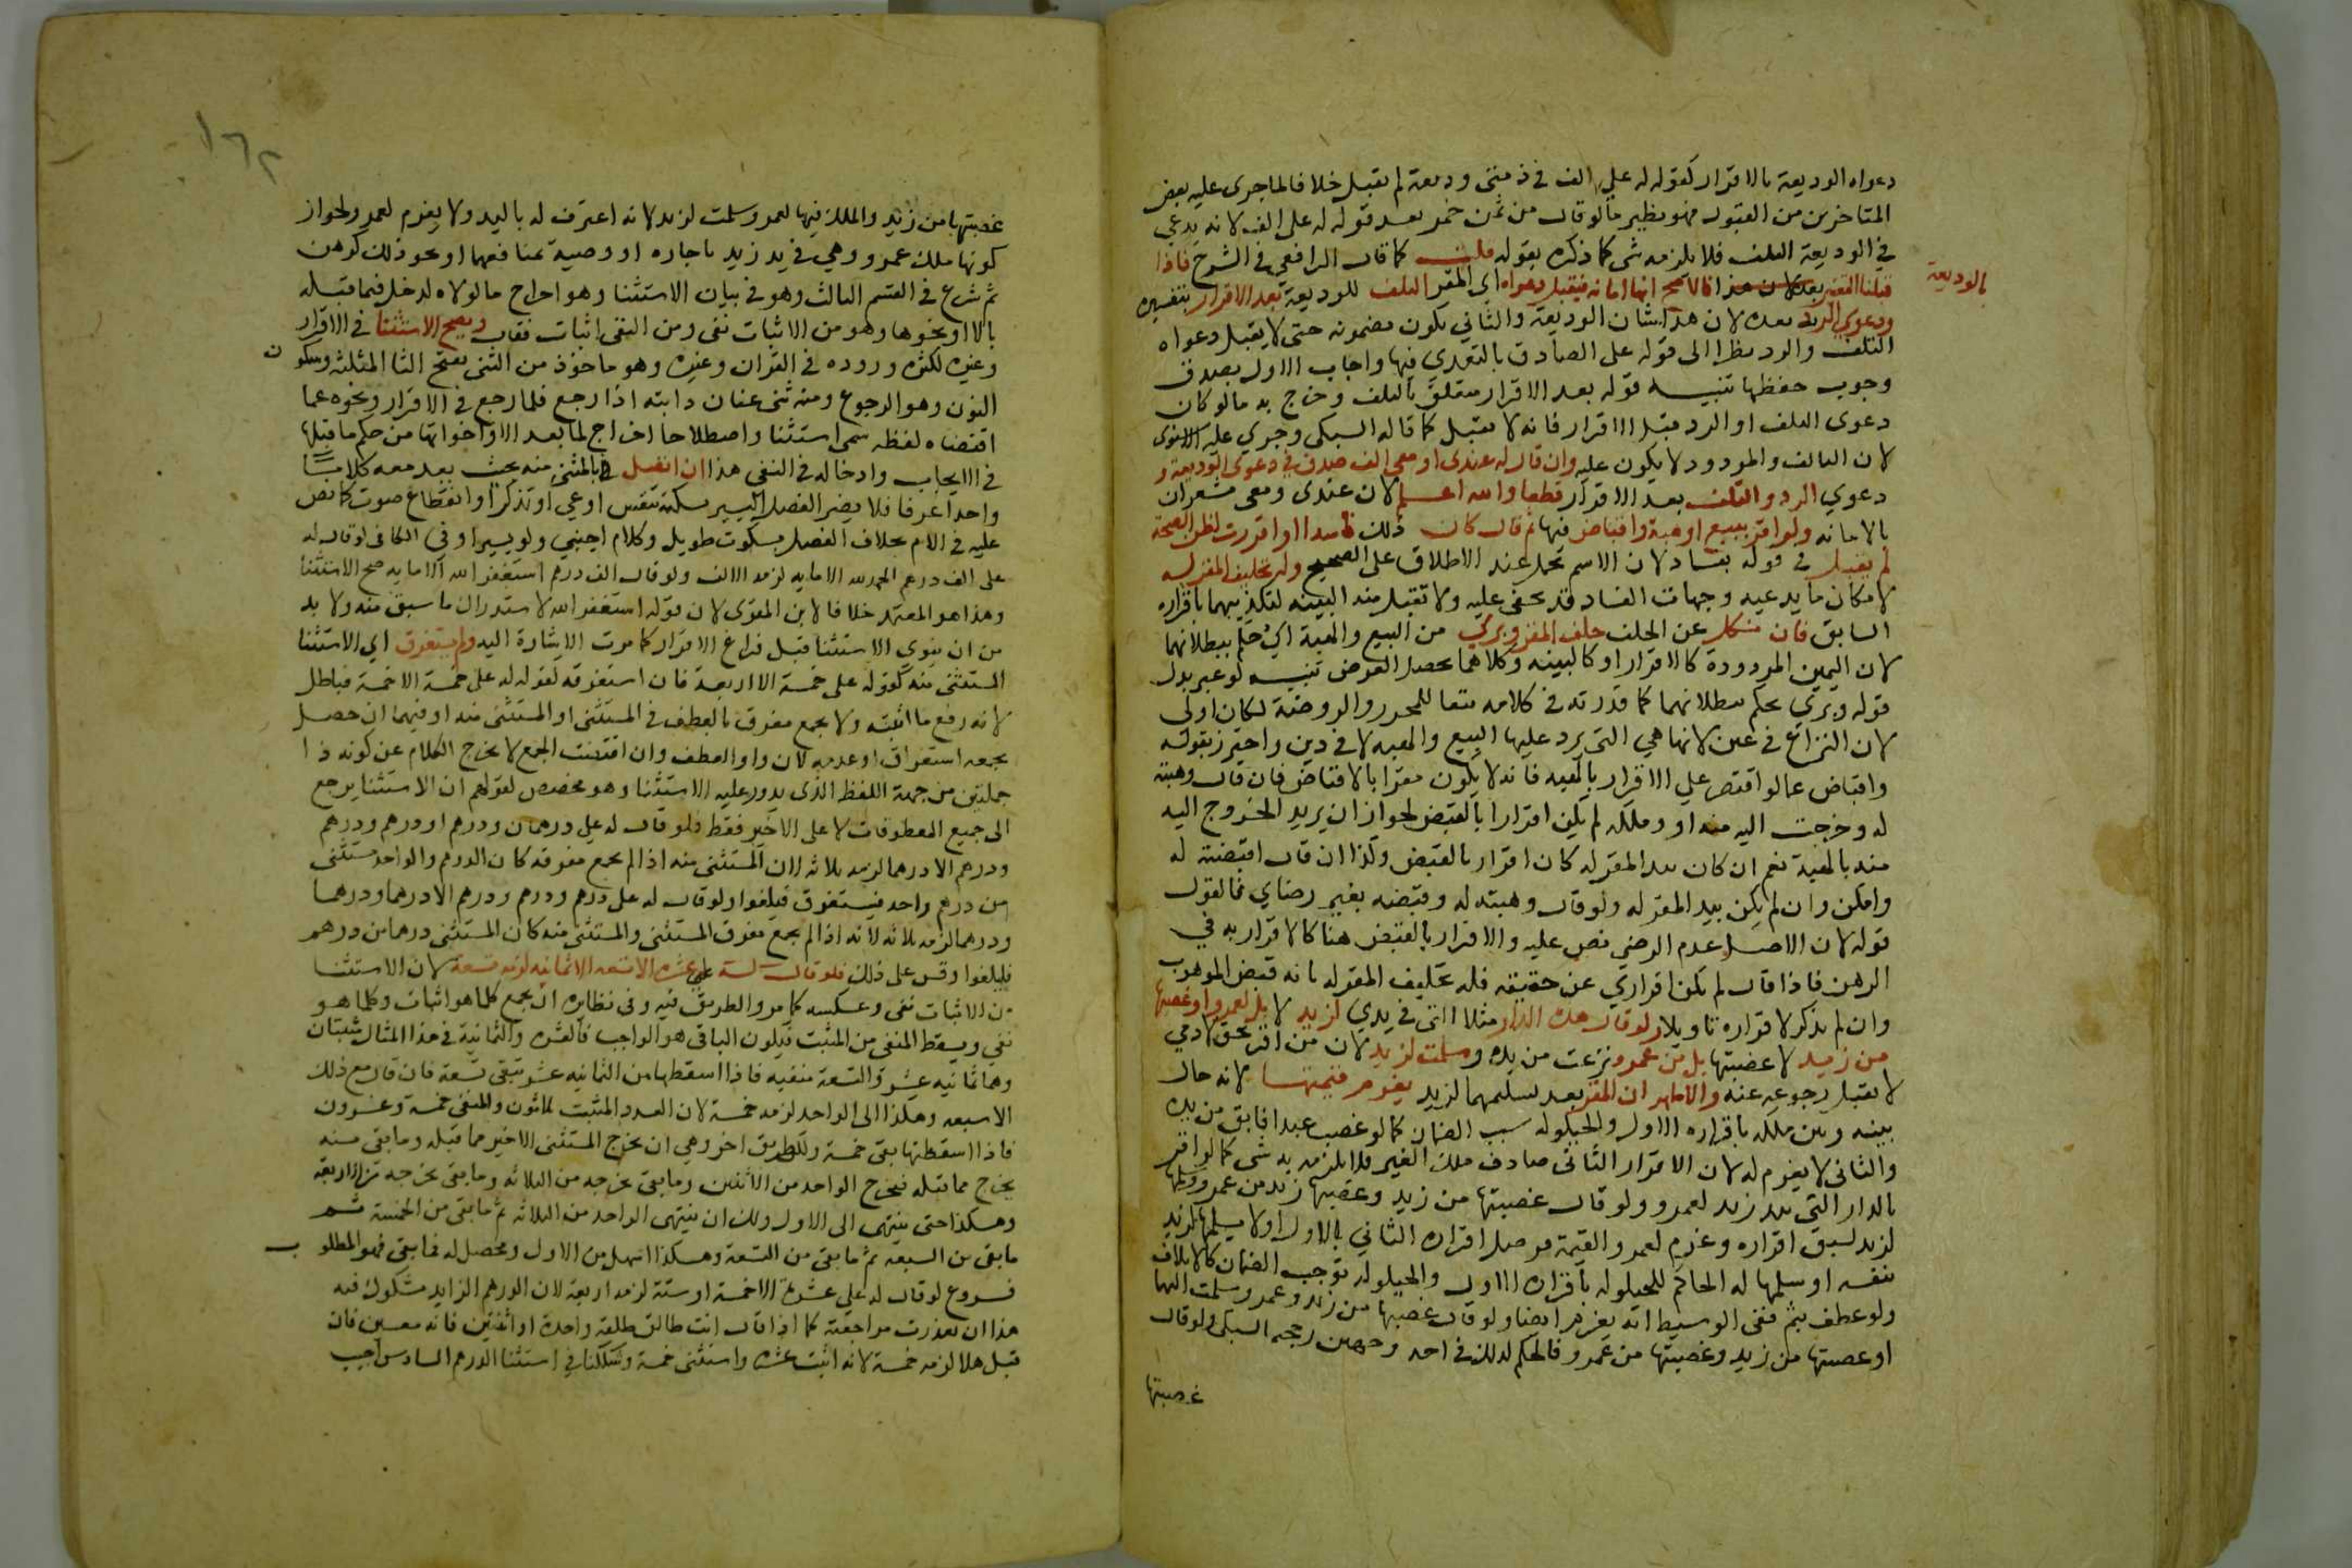 دعواه الوديعة بالاقرار كقوله له علي الف في ذمتي وديعة لم يقبل خلافا لما جرى عليه بعض
المتاخرين من القبول فهو نظير ما لو قال من ثمن خمر بعد قوله له على الف لانه يدعي
في الوديعة التلف فلا يلزمه شي كما ذكره بقوله قلت كما قال الرافعي في الشرح فاذا
قبلنا التفسير بالوديعة فالاصح انها امانة فيقبل دعواه اي المقر التلف للوديعة بعد الاقرار بتفسيره
ودعوي الرد بعده لان هذا شان الوديعة والثاني يكون مضمونه حتى لا يقبل دعواه
التلف والرد نظرا الى قوله على الصادق بالتعدي فيها واجاب الاول بصدق
وجوب حفظها تنبيه قوله بعد الاقرار متعلق بالتلف وخرج به ما لو كان
دعوى التلف او الرد قبل الاقرار فانه لا يقبل كما قاله السبكي وجري عليه الاسنوي
لان التالف والمردود لا يكون عليه وان قال له عندى او معى الف صدق في دعوى الوديعة و
دعوي الرد والتلف بعد الاقرار قطعا والله اعلم لان عندى ومعى مشعران
بالامانه ولو اقر ببيع او هبة واقباض فيها ثم قال كان ذلك فاسدا او اقررت لظن الصحة
لم يقبل في قوله بفساد لان الاسم يحمل عند الاطلاق على الصحيح وله تحليف المقر له
لامكان ما يدعيه وجهات الفساد قد تخفى عليه ولا تقبل منه البينه لتكذيبهما باقراره
السابق فان نكل عن الحلف حلف المقر وبري من البيع والهبة اي حكم ببطلانهما
لان اليمين المردودة كالاقرار او كالبينه وكلاهما يحصل الغرض تنبيه لو عبر بدل
قوله وبري بحكم ببطلانهما كما قدرته في كلامه تبعا للمحرر والروضة لكان اولى
لان النزاع في عين لانها هي التي يرد عليها البيع والهبه لا في دين واحترز بقوله
واقباض عما لو اقتصر علي الاقرار بالهبه فانه لا يكون مقرا بالاقباض فان قال وهبته
له وخرجت اليه منه او وملكه لم يكن اقرارا بالقبض لجواز ان يريد الخروج اليه
منه بالهبة نعم ان كان بيد المقر له كان اقرار بالقبض وكذا ان قال اقبضته له
وامكن وان لم يكن بيد المقر له ولو قال وهبته له وقبضه بغير رضاي فالقول
قوله لان الاصل عدم الرضي نص عليه والاقرار بالقبض هنا كالاقرار به في
الرهن فاذا قال لم يكن اقراري عن حقيقه فله تحليف المقر له بانه قبض الموهوب
وان لم يذكر لاقراره تاويلا ولو قال هذه الدار مثلا التي في يدي لزيد لا بل لعمرو او غصبتها
من زيد لا غصبتها بل من عمرو نزعت من يده وسلمت لزيد لان من اقر بحق لادمي
لا يقبل رجوعه عنه والاظهر ان المقر بعد تسليمها لزيد يغرم قيمتها لانه حال
بينه وبين ملكه باقراره الاول والحيلوله سبب الضمان كما لو غصب عبدا فابق من يده
والثانى لا يغرم له لان الاقرار الثانى صادف ملك الغير فلا يلزمه به شى كما لو اقر
بالدار التى بيد زيد لعمرو ولو قال غصبتها من زيد وغصبها زيد من عمرو وسلمها
لزيد لسبق اقراره وغرم لعمرو القيمة موصل اقراره الثاني بالاول او لا سلمها لزيد
بنفسه او سلمها له الحاكم للحيلوله باقراره الاول والحيلوله توجب الضمان كالاتلاف
ولو عطف بثم ففى الوسيط انه يغرم ايضا ولو قال غصبتها من زيد وعمرو سلمت اليهما
او غصبتها من زيد وغصبتها من عمرو فالحكم كذلك في احد وجهين رجحه السبكي ولو قال
غصبتها
بالوديعة
١٦٢
غصبتها من زيد والملك فيها لعمرو سلمت لزيد لانه اعترف له باليد ولا يغرم لعمرو لجواز
كونها ملك عمرو وهي في يد زيد باجاره او وصية بمنافعها او نحو ذلك كرهن
ثم شرع في القسم الثالث وهو في بيان الاستثنا وهو اخراج ما لولاه لدخل فيما قبله
بالا او نحوها وهو من الاثبات نفى ومن النفى اثبات فقال ويصح الاستثنا في الاقرار
وغيره لكثره وروده في القران وغيره وهو ماخوذ من الثنى بفتح الثا المثلثه وسكون
النون وهو الرجوع ومنه ثنى عنان دابته اذا رجع فلما رجع في الاقرار ونحوه عما
اقتضاه لفظه سمى استثنا واصطلاحا اخراج لما بعد الا واخواتها من حكم ما قبلها
في الايجاب وادخاله في النفى هذا ان اتصل بالمثنى منه بحيث يعد معه كلاما
واحدا عرفا فلا يضر الفصل اليسير بسكتة تنفس او عي او تذكر او انقطاع صوت كما نص
عليه في الام بخلاف الفصل بسكوت طويل وكلام اجنبي ولو يسيرا وفي الكافى لو قال له
على الف درهم الحمد لله الا مايه لزمه الالف ولو قال الف درهم استغفر الله الا مايه صح الاستثنا
وهذا هو المعتمد خلافا لابن المقرى لان قوله استغفر الله لاستدراك ما سبق منه ولا بد
من ان ينوي الاستثنا قبل فراغ الاقرار كما مرت الاشارة اليه ولم يستغرق اي الاستثنا
المستثنى منه كقوله على خمسة الا اربعة فان استغرقه كقوله له على خمسة الا خمسة فباطل
لانه رفع ما اثبته ولا يجمع مفرق بالعطف في المستثنى او المستثنى منه او فيهما ان حصل
بجمعه استغراق او عدمه لان واو العطف وان اقتضت الجمع لا يخرج الكلام عن كونه ذا
جملتين من جهة اللفظ الذى يدور عليه الاستثنا وهو مخصص لقولهم ان الاستثنا يرجع
الى جميع المعطوفات لا على الاخير فقط فلو قال له علي درهمان ودرهم او درهم ودرهم
ودرهم الا درهما لزمه ثلاثه لان المستثنى منه اذا لم يجمع مفرقه كان الدرهم الواحد مستثنى
من درهم واحد فيستغرق فيلغوا ولو قال له على درهم ودرهم ودرهم الا درهما ودرهما
ودرهما لزمه ثلاثه لانه اذا لم يجمع مفرق المستثنى والمستثنى منه كان المستثنى درهما من درهم
فيلغوا وقس على ذلك فلو قال له علي عشره الا تسعه الا ثمانيه لزمه تسعه لان الاستثنا
من الاثبات نفى وعكسه كما مر والطريق فيه وفى نظايره ان يجمع كلما هو اثبات وكلما هو
نفي ويسقط المنفى من المثبت فيكون الباقى هو الواجب فالعشره والثمانية في هذا المثال مثبتان
وهما ثمانيه عشر والتسعة منفيه فاذا اسقطها من الثمانيه عشر تبقى تسعة فان قال مع ذلك
الا سبعه وهكذا الى الواحد لزمه خمسة لان العدد المثبت ثلاثون والمنفى خمسة وعشرون
فاذا اسقطتها بقى خمسة ولك طريق اخر وهي ان تخرج المستثنى الاخير مما قبله وما بقى منه
يخرج مما قبله فيخرج الواحد من الاثنين وما بقى نخرجه من الثلاثه وما بقى نخرجه من الاربعة
وهكذا حتى ينتهى الى الاول ولك ان ينتهى الواحد من الثلاثه ثم ما بقى من الخمسة ثم
ما بقى من السبعه ثم ما بقى من التسعة وهكذا اسهل من الاول ومحصل له فما بقى فهو المطلوب
فروع لو قال له علي عشرة الا خمسة او ستة لزمه اربعة لان الدرهم الزايد مشكوك فيه
هذا ان تعذرت مراجعته كما اذا قال انت طالق طلقة واحدة او اثنتين فانه معين فان
قيل هلا لزمه خمسة لانه اثبت عشره واستثنى خمسة وشككنا في استثنا الدرهم السادس اجيب